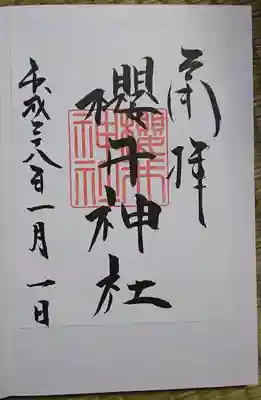 拝
櫻井神社
平成二八年一月一日
櫻井
神社